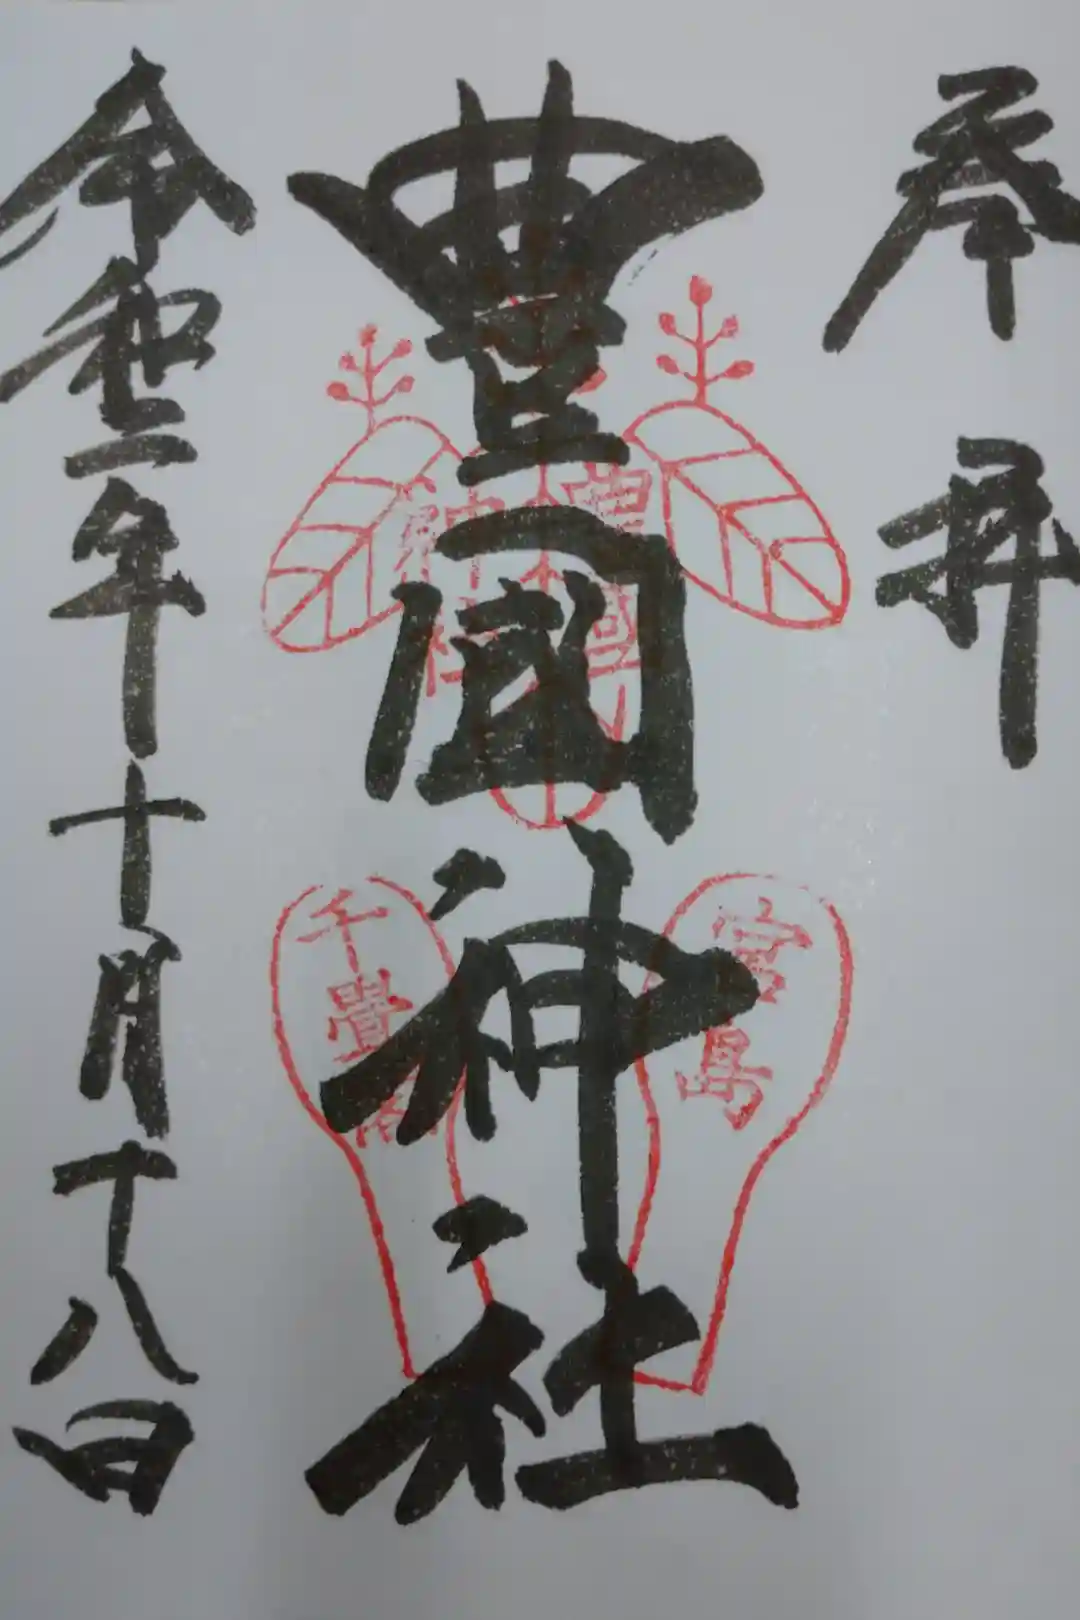 奉拝
豊國神社
令和二年十月十八日
豊國
神社
宮島
千畳閣